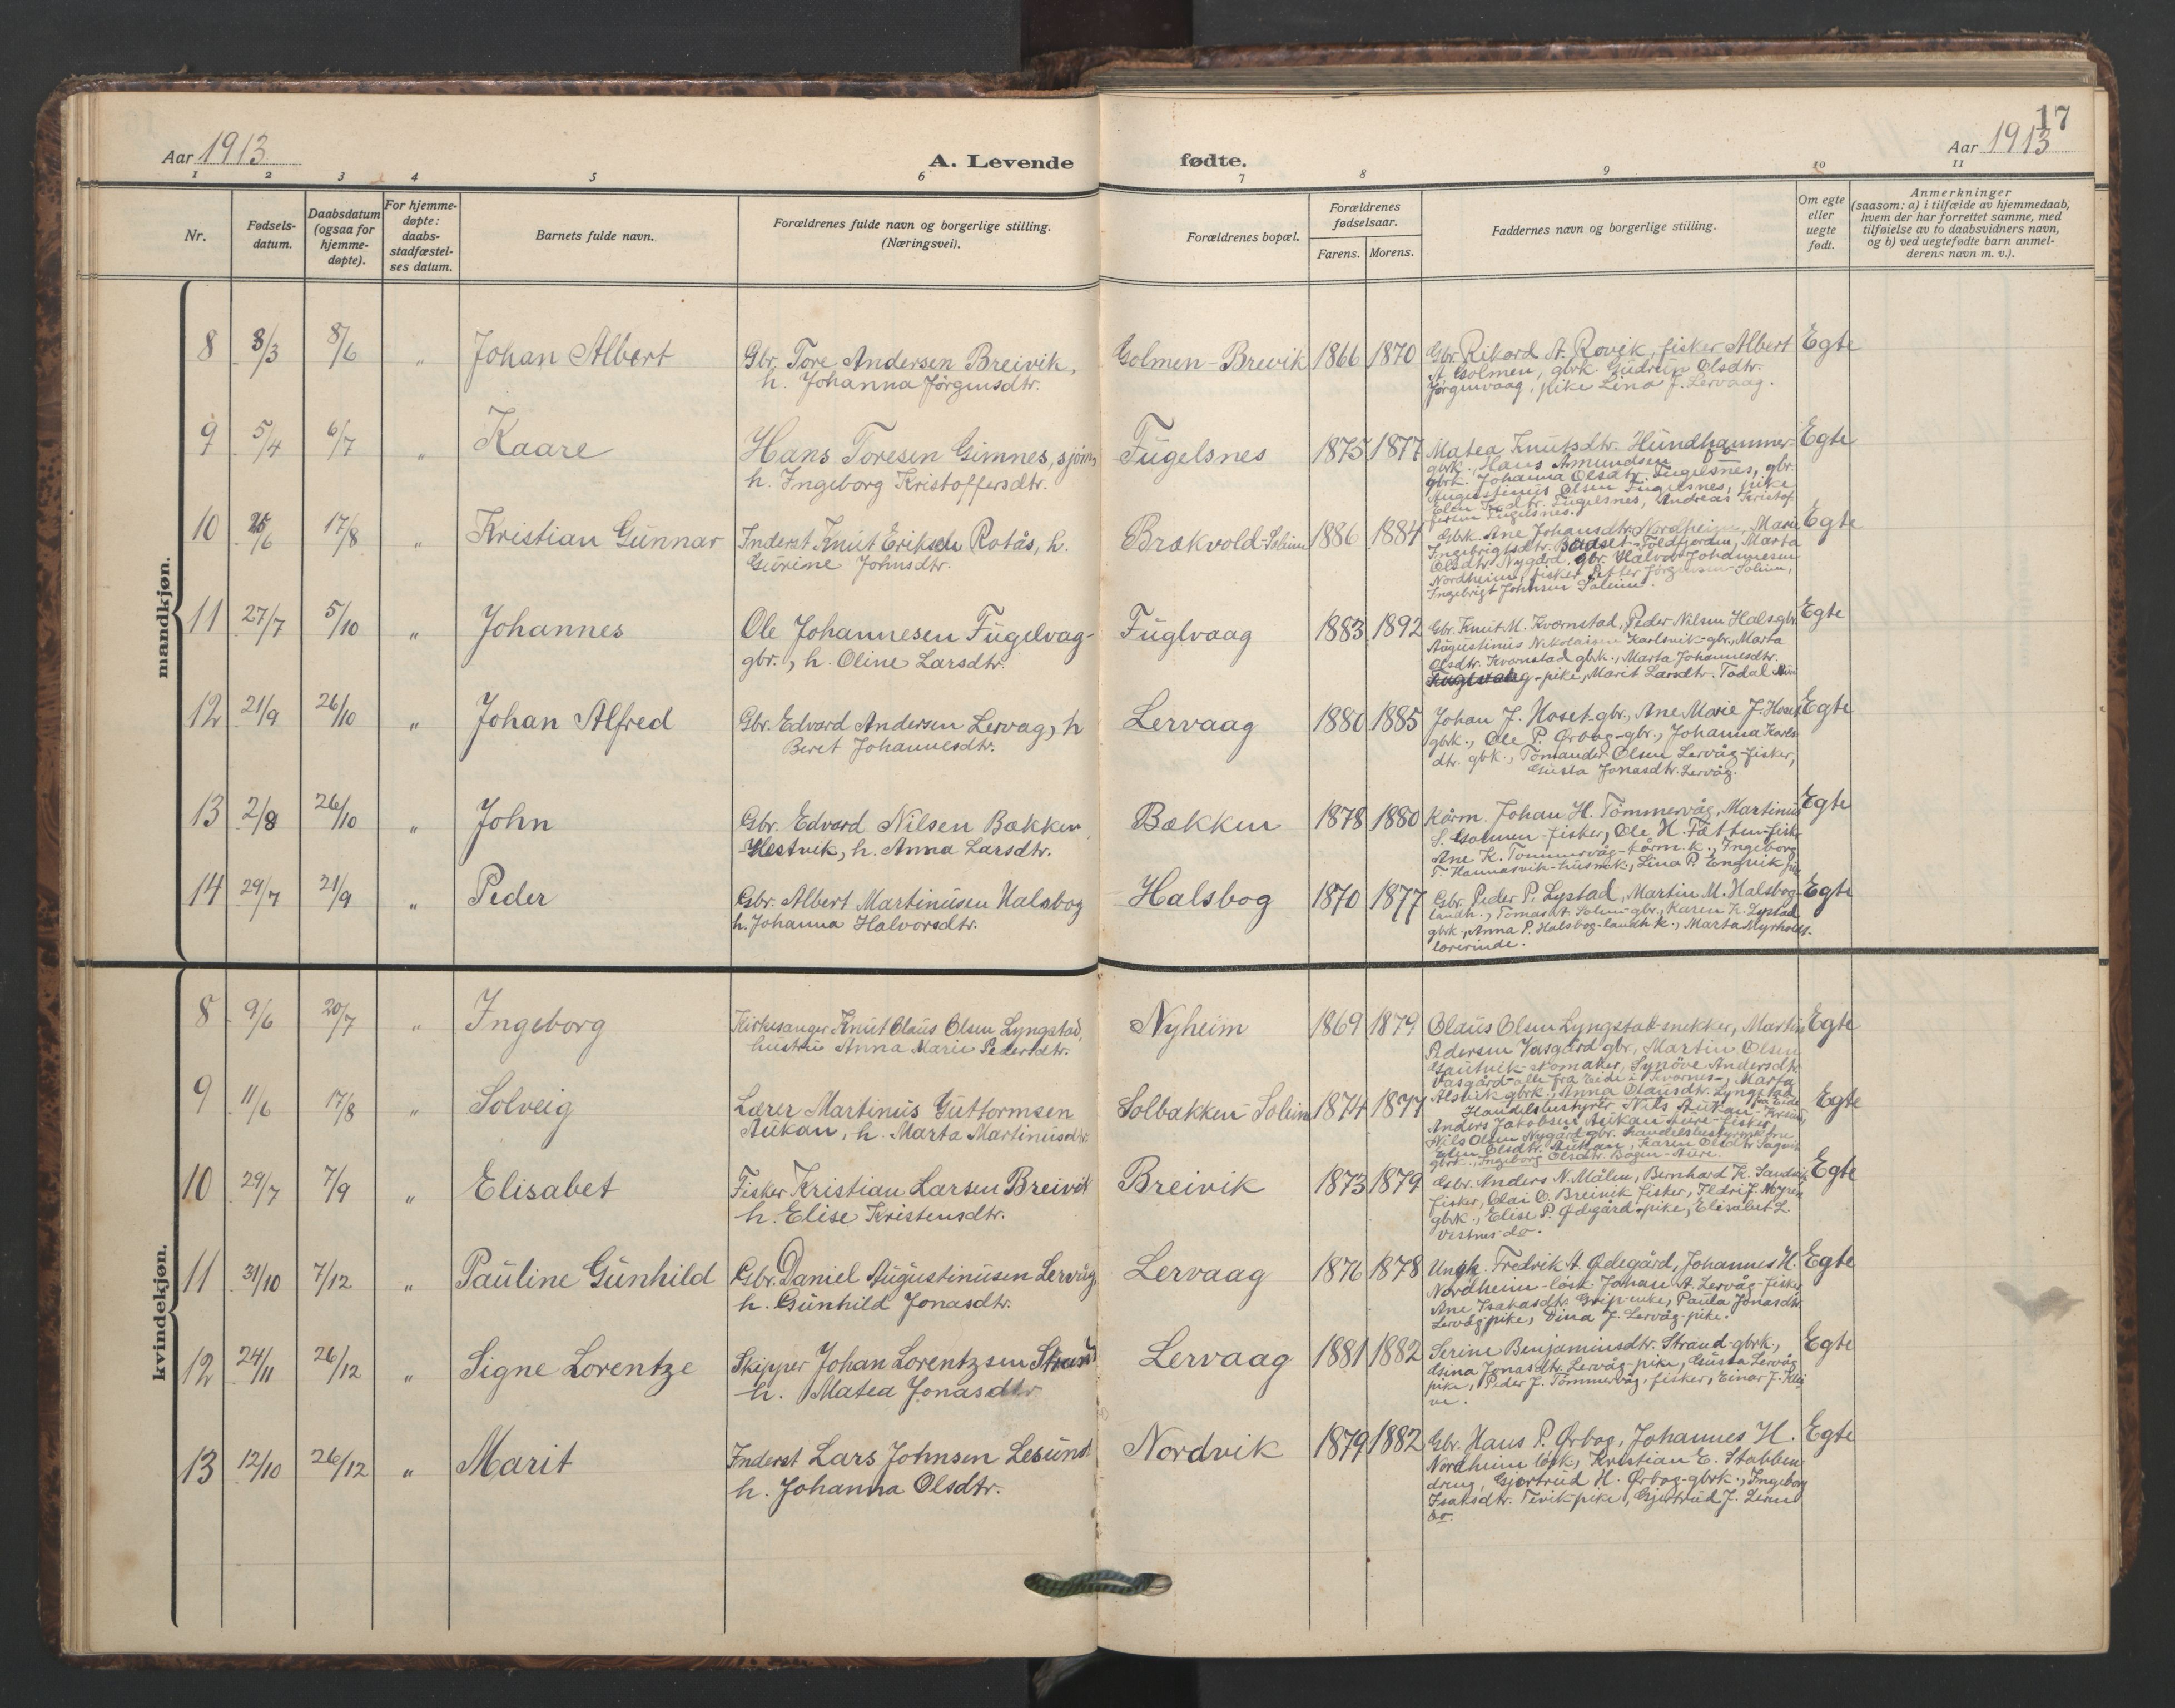 17
Aar 1913
A. Levende
fødte.
Aar 1913
1 2 3 4 5 6 7 8 9 10 11
Nr.
Fødsels-
datum.
Daabsdatum
(ogsaa for
hjemme-
døpte).
For hjemme-
døpte:
daabs-
stadfæstel-
ses datum.
Barnets fulde navn.
Forældrenes fulde navn og borgerlige stilling.
(Næringsvei).
Forældrenes bopæl.
Forældrenes
fødselsaar.
Farens. Morens.
Faddernes navn og borgerlige stilling.
Om egte
eller
uegte
født.
Anmerkninger
(saasom: a) i tilfælde av hjemmedaab,
hvem der har forrettet samme, med
tilføielse av to daabsvidners navn,
og b) ved uegtefødte barn anmel-
derens navn m. v.).
mandkjøn.
8 3/3 8/6 " Johan Albert
Gbr. Tore Andersen Breivik,
h. Johanna Jørginsdtr.
Golmen-Brevik 1866 1870
Gbr. Rikard A. Rovik, fisker Albert
A. Golmen, gbrk. Gudrun Olsdtr.
Jørginvaag, pike Lina J. Lervaag.
Egte
9 5/4 6/7 " Kaare
Hans Toresen Gimnes, sjøm,
h. Ingeborg Kristoffersdtr.
Fugelsnes 1875 1877
Matea Knutsdtr. Hundhammer-
gbrk., Hans Amundsen
gbrk. Johanna Olsdtr. Fugelsnes, gbr.
Augustinus Olsen Fugelsnes, pike
Fugelsnes, Andreas Kristof
fersen Fugelsnes.
Egte
10 17/8 " Kristian Gunnar
Inderst Knut Eriksen Rotås, h.
Gurine Johnsdtr.
Brækvold-Soleim 1886 1884
Gbrk. Ane Johansdtr. Nordheim, Marie
Ingebrigtsdtr. Foldfjorden, Marta
Olsdtr. Nygård, Gbr. Halvor Johannesen
Nordheim, fisker Petter Jørgensen Soleim,
Ingebrigt Johnsen Soleim.
Egte
11 27/7 5/10 " Johannes
Ole Johannesen Fugelvag-
gbr., h. Oline Larsdtr.
Fuglvaag 1883 1892
Gbr. Knut M. Kvornstad, Peder Nilsen Hals gbr.
Augustinus Nikolaisen Karlsvik-gbr., Marta
Olsdtr. Kvornstad gbrk., Marta Johannesdtr.
Fuglvaag-pike, Marit Larsdtr. Todal
Egte
12 21/9 26/10 " Johan Alfred
Gbr. Edvard Andersen Lervag, h
Beret Johannesdtr.
Lervaag 1880 1885
Johan J. Hoset-gbr., Ane Marie J. Hoset
gbrk., Ole P. Ørbog-gbr., Johanna Karls
dtr. gbk., Tomander Olsen Lervåg-fisker,
Gusta Jonasdtr. Lervåg.
Egte
13 2/8 26/10 " John
Gbr. Edvard Nilsen Bækken
-Hestvik, h. Anna Larsdtr.
Bækken 1878 1880
Kårm. Johan H. Tömmervåg, Martinus
S. Golmen-fisker, Ole H. Fætten-fisk
Ane K. Tömmervåg-kårm.k., Ingeborg
T. Hannasvik-husmk., Lina P. Engvik
Egte
14 29/7 21/9 " Peder
Gbr. Albert Martinusen Halsbog
h. Johanna Halvorsdtr.
Halsbog 1870 1877
Gbr. Peder P. Lystad, Martin M. Halsbog-
landh., Tomas A. Solem-gbr., Karen K. Lystad
gbrk., Anna P. Halsbog-landh.k., Marta Myrholds-
lærerinde.
Egte
kvindekjøn.
8 9/6 20/7 " Ingeborg
Kirkesanger Knut Olaus Olsen Lyngstad,
hustru Anna Marie Pedersdtr.
Nyheim 1869 1879
Olaus Olsen Lyngstad-snekker, Martin
Pedersen Vasgård gbr., Martin Olsen
Gautvik-skomaker, Synöve Andersdtr.
Vasgård-alle fra Eide i Kvernes-, Marta
Alsvik gbrk., Anna Olausdtr. Lyngstad
Egte
9 11/6 17/8 " Solveig
Lærer Martinus Guttormsen
Aukan, h. Marta Martinusdtr.
Solbakken-Soleim 1874 1877
Handelsbestyrer Nils Aukan-Krsund,
Anders Jakobsen Aukan Aure-fisker,
Nils Olsen Nygård gbr. Handelsbestyrerfrue
Elen Olsdtr. Aukan, Karen Olsdtr. Sagvik
gbrk., Ingeborg Olsdtr. Bogen-Aure.
Egte
10 29/7 7/9 " Elisabet
Fisker Kristian Larsen Breivik
h. Elise Kristensdtr.
Breivik 1873 1879
Gbr. Anders N. Målen, Bernhard K. Sandvik
fisker, Olai O. Breivik fisker, Ildri J. Myren
gbrk., Elise P. Ødegård-pike, Elisabet L.
Vestnes do.
Egte
11 31/10 7/12 " Pauline Gunhild
Gbr. Daniel Augustinusen Lervåg,
h. Gunhild Jonasdtr.
Lervaag 1876 1878
Ungk. Fredrik A. Ødegård, Johannes H.
Nordheim-løsk. Johan A. Lervåg-fisker
Ane Isaksdtr. Grip-enke, Paula Jonasdtr.
Lervåg-pike, Dina J. Lervåg-pike.
Egte
12 24/11 26/12 " Signe Lorentze
Skipper Johan Lorentzsen Strand
h. Matea Jonasdtr
Lervaag 1881 1882
Serine Benjaminsdtr. Strand-gbrk.,
Gina Jonasdtr. Lervåg-pike, Gusta Lervåg
pike, Peder J. Tömmervåg, fisker, Einar J. Klei
ve.
Egte
13 12/10 26/12 " Marit
Inderst Lars Johnsen Lesund
h. Johanna Olsdtr.
Nordvik 1879 1882
Gbr. Hans P. Ørbog, Johannes H.
Nordheim løsk, Kristian E. Stabben
dreng, Gjertrud H. Ørbog-gbrk., Ingeborg
Isaksdtr. Tevik-pike, Gjertrud J. Lerm
do.
Egte